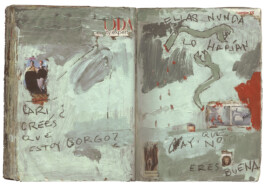 CARI ¿
CREES
QUE
ESTOY GORDO?
ELLAS NUNCA
LO HARÍAN
¿QUE
HAY NO
ERES
BUENA